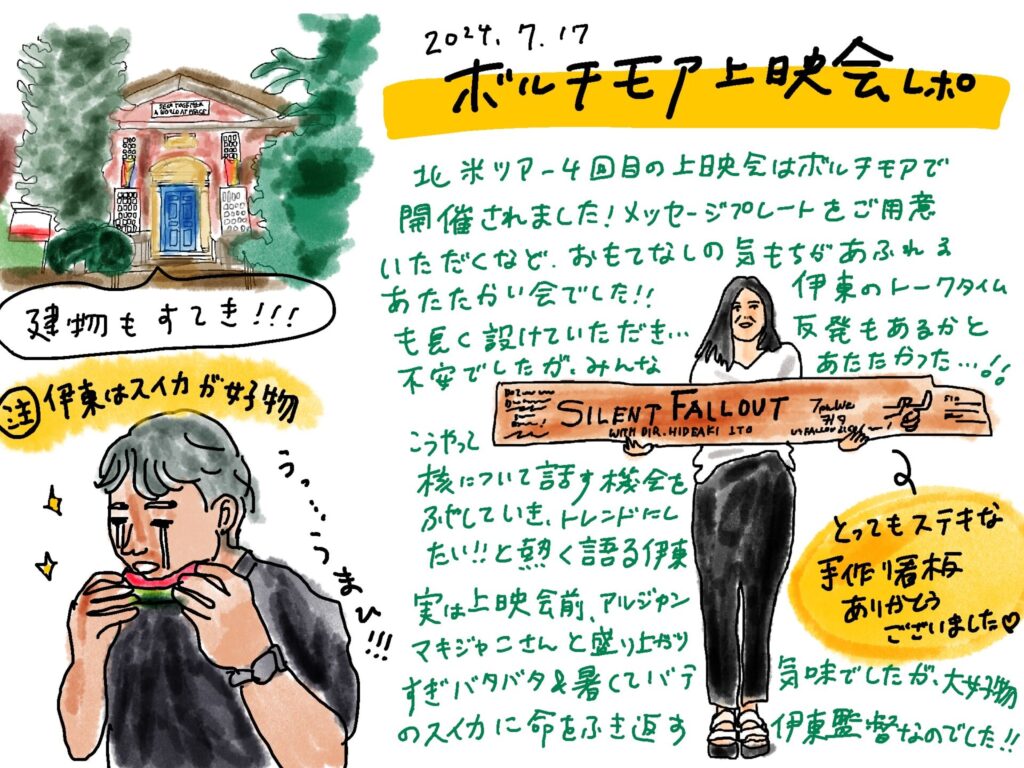 2024.7.17
ボルチモア上映会レポ
北米ツアー4回目の上映会はボルチモアで
開催されました！メッセージプレートをご用意
いただくなど、おもてなしの気もちがあふれる
あたたかい会でした!! 伊東のトークタイム
も長く設けていただき… 反発もあるかと
不安でしたが、みんな あたたかった…!!
こうやって
核について話す機会を
ふやしていき、トレンドにし
たい!!と熱く語る伊東
実は上映会前、アルジャン
マキジャニさんと盛り上がり
すぎバタバタ&暑くてバテ 気味でしたが、大好物
のスイカに命をふき返す 伊東監督なのでした!!
建物もすてき!!!
注 伊東はスイカが好物
うっ…うまひ!!!
SILENT FALLOUT
WITH DIR. HIDEAKI ITO
とってもステキな
手作り看板
ありがとう
ございました♡